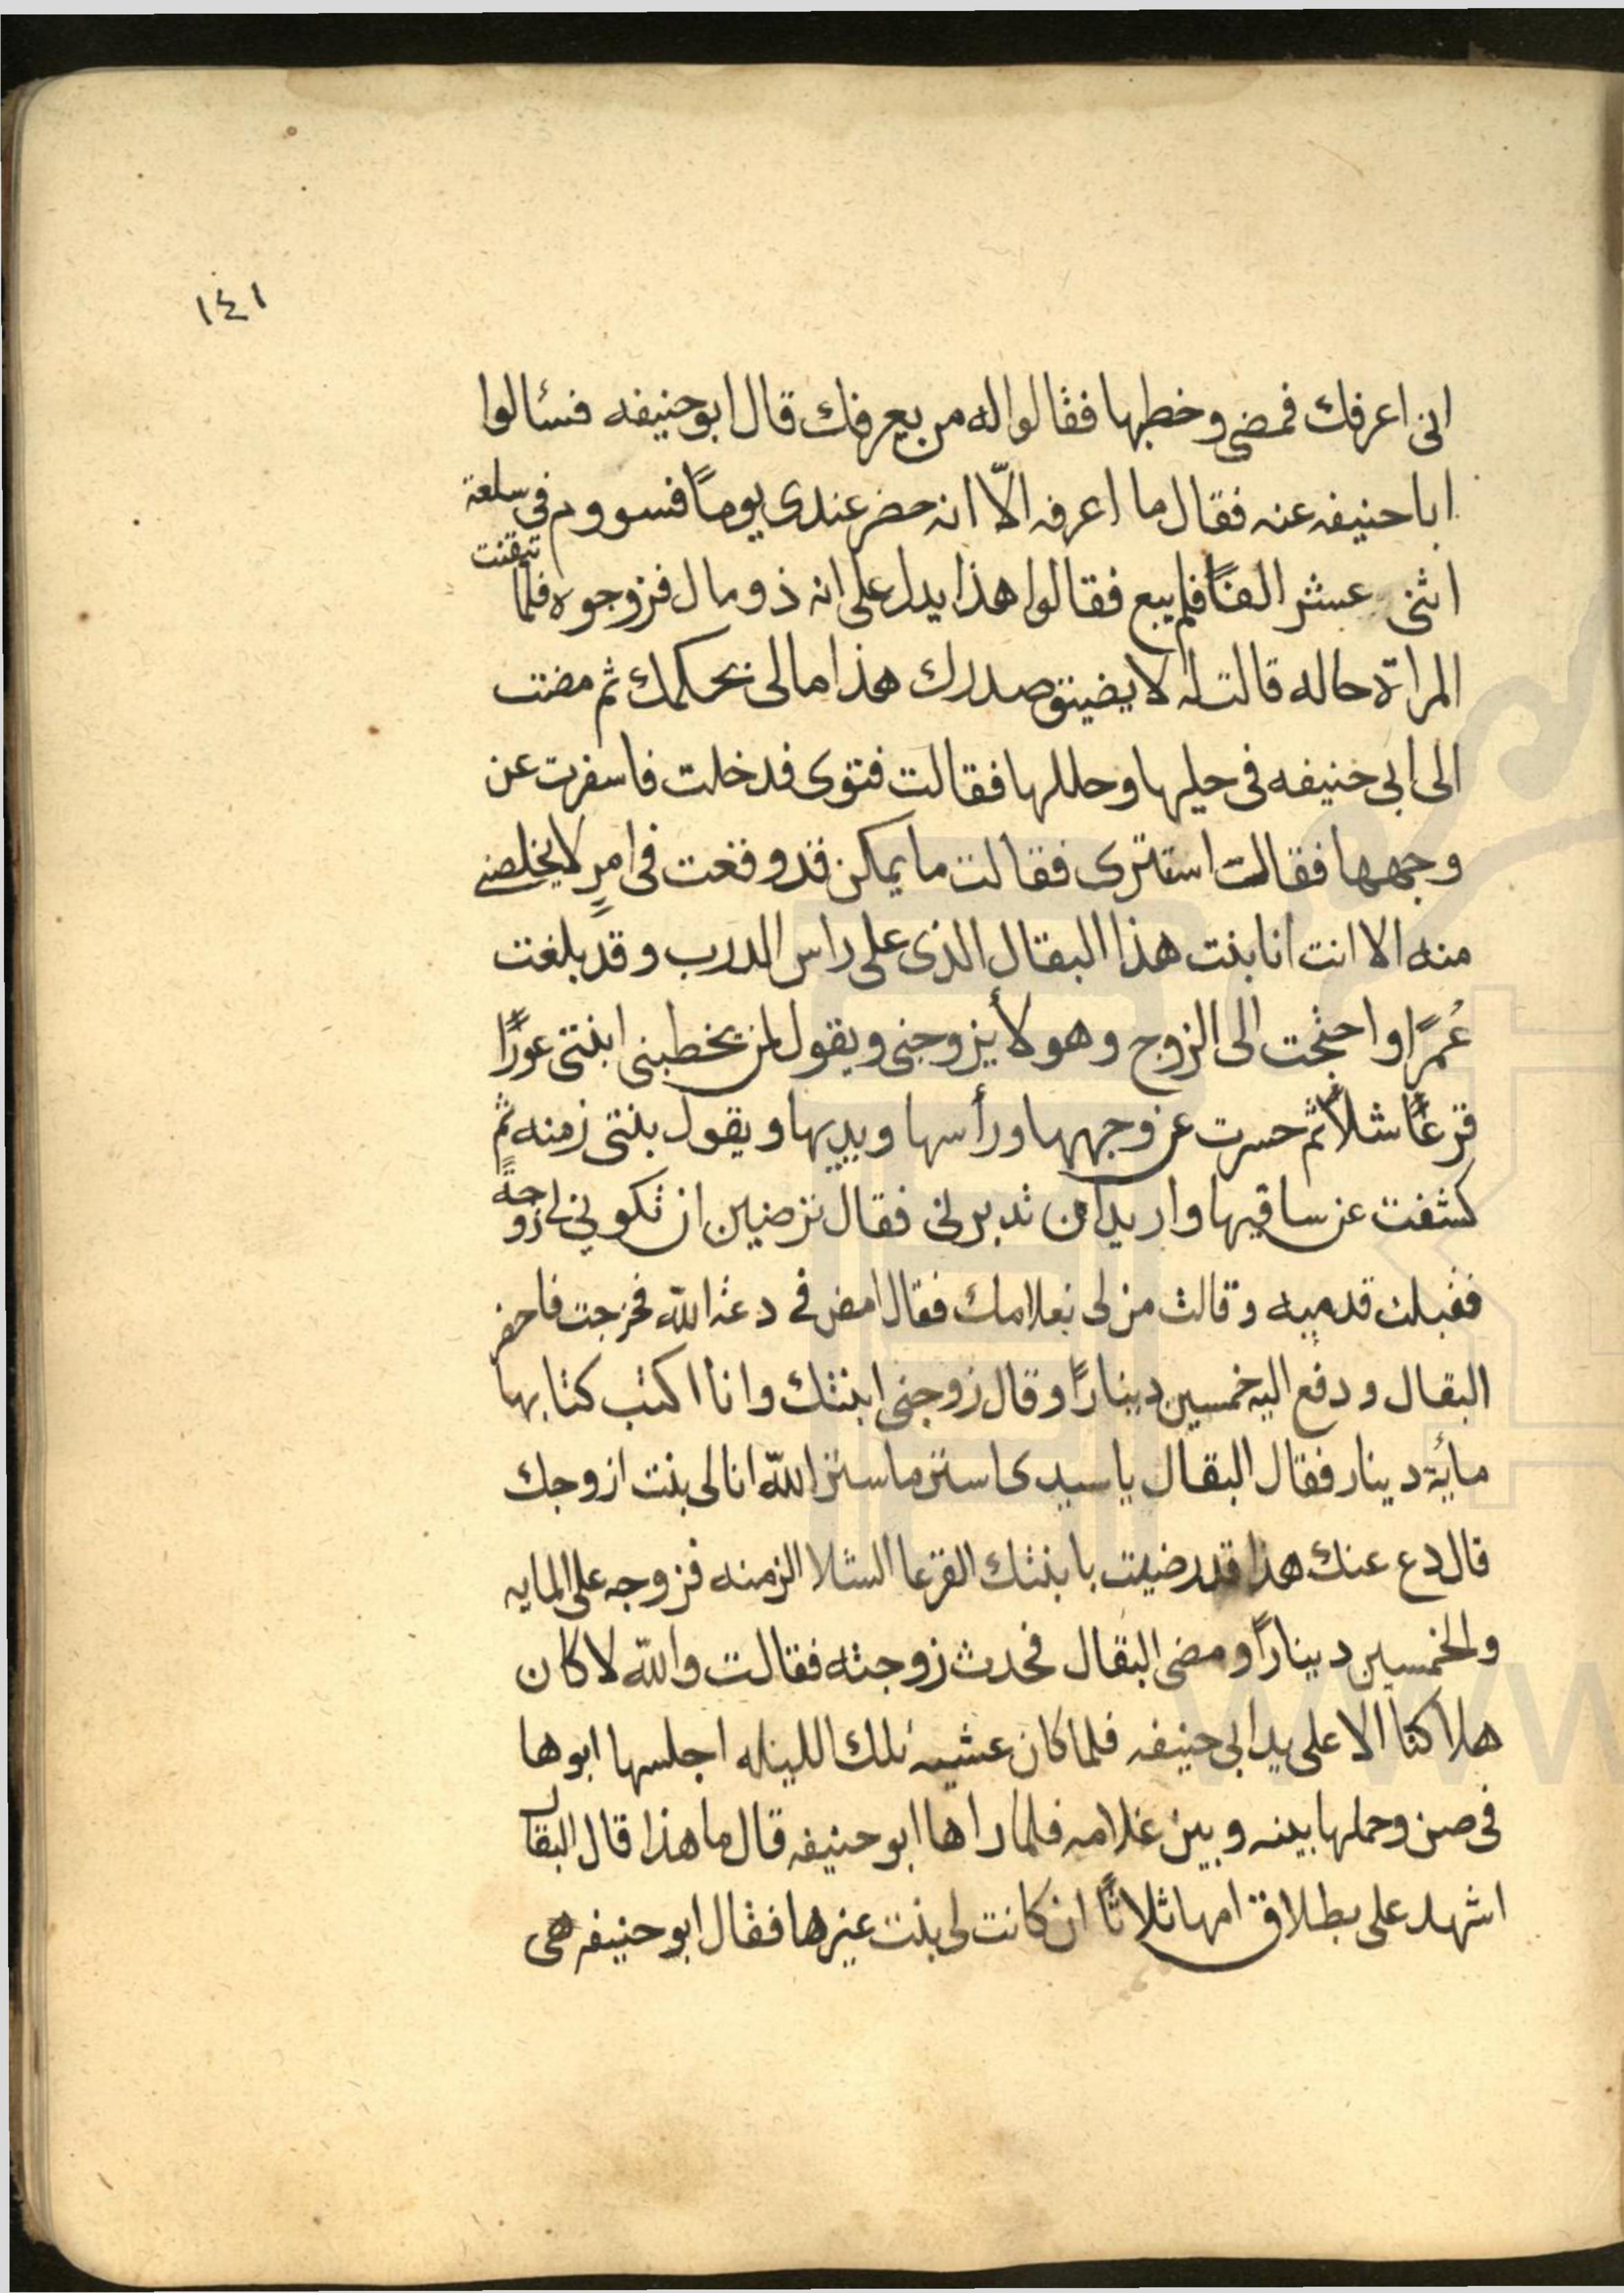 ١٤١
انى اعرفك فمضى وخطبها فقالوا له من يعرفك قال ابو حنيفه فسئالوا
ابا حنيفه عنه فقال ما اعرفه الّا انه حضر عندى يومًا فسووم فى سلعة
اثنى عشر الفًا فلم يبع فقالوا هذا يدل على انه ذو مال فزوجوه فلما تيقنت
المراة حاله قالت له لا يضيق صدرك هذا مالى بحكمك ثم مضت
الى ابى حنيفه فى حليها وحللها فقالت فتوى فدخلت فاسفرت عن
وجهها فقالت استترى فقالت ما يمكن قد وقعت فى امرٍ لا يخلصنى
منه الا انت انا بنت هذا البقال الذى على راس الدرب وقد بلغت
عُمرًا واحتجت الى الزوج وهو لا يزوجنى ويقول لمن يخطبنى ابنتى عورًا
قرعًا شلًا ثم حسرت عن وجهها ورأسها ويديها ويقول بنتى زمنه ثم
كشفت عن ساقيها واريد ان تدبرنى فقال ترضين ان تكونى لى زوجةً
فقبلت قدميه وقالت من لى بغلامك فقال امض فى دعة الله فخرجت فاحضر
البقال ودفع اليه خمسين دينارًا وقال زوجنى ابنتك وانا اكتب كتابها
مأية دينار فقال البقال يا سيدى استر ما ستر الله انا لى بنت ازوجك
قال دع عنك هذا قد رضيت بابنتك القرعا الشلا الزمنه فزوجه على المايه
والخمسين دينارًا ومضى البقال فحدث زوجته فقالت والله لا كان
هلاكنا الا على يد ابى حنيفه فلما كان عشية تلك الليله اجلسها ابوها
فى صن وحملها بينه وبين غلامه فلما راها ابو حنيفه قال ما هذا قال البقال
اشهد على بطلاق امها ثلاثًا ان كانت لى بنت غيرها فقال ابو حنيفه هى